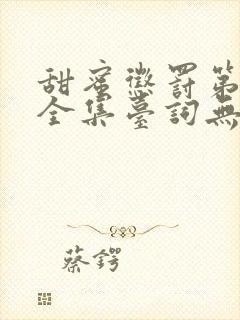 甜蜜懲罰第
全集臺詞無
蔡鍔